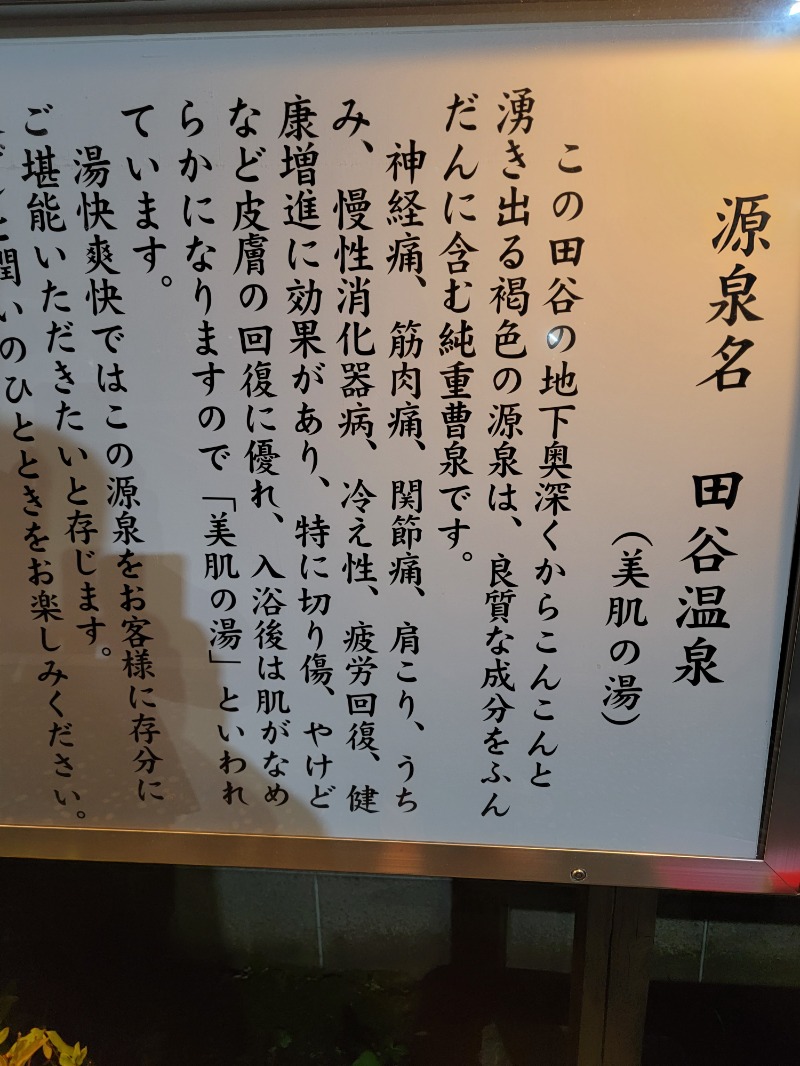 源泉名　田谷温泉
（美肌の湯）
この田谷の地下奥深くからこんこんと
湧き出る褐色の源泉は、良質な成分をふん
だんに含む純重曹泉です。
神経痛、筋肉痛、関節痛、肩こり、うち
み、慢性消化器病、冷え性、疲労回復、健
康増進に効果があり、特に切り傷、やけど
など皮膚の回復に優れ、入浴後は肌がなめ
らかになりますので「美肌の湯」といわれ
ています。
湯快爽快ではこの源泉をお客様に存分に
ご堪能いただきたいと存じます。
と潤いのひとときをお楽しみください。